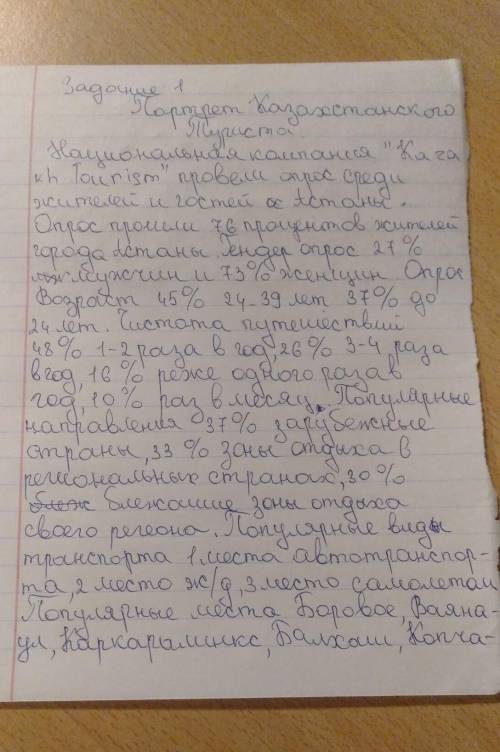 Задание 1
Портрет Казахстанского
Туриста.
Национальная компания "Kaza
kh Tourism" провели опрос среди
жителей и гостей Астаны.
Опрос прошли 76 процентов жителей
города Астаны. Гендер опрос 27%
мужчин и 73% женщин. Опрос
Возраст 45% 24-39 лет 37% до
24 лет. Чистата путешествий
48% 1-2 раза в год, 26% 3-4 раза
в год, 16% реже одного раза в
год, 10% раз в месяц. Популярные
направления 37% зарубежные
страны, 33% зоны отдыха в
региональных странах, 30%
ближ блежашие зоны отдыха
своего региона. Популярные виды
транспорта 1 места автотранспор-
та, 2 место ж/д, 3 место самолетам
Популярные места Боровое, Баяна-
ул, Каркараминкс, Балхаш, Копча-